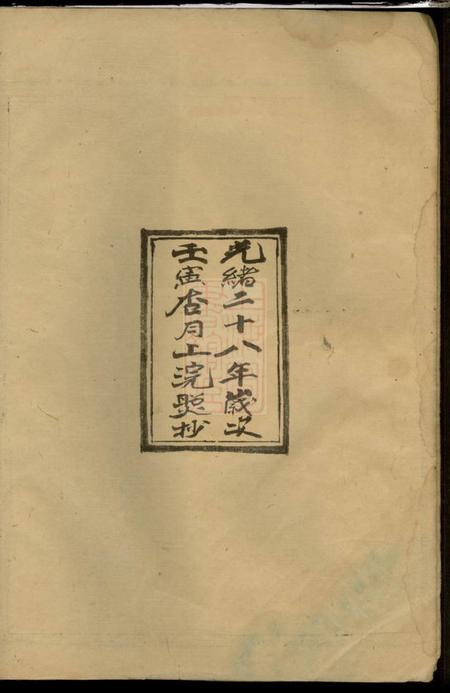 光緒二十八年歲次
壬寅杏月上浣題抄